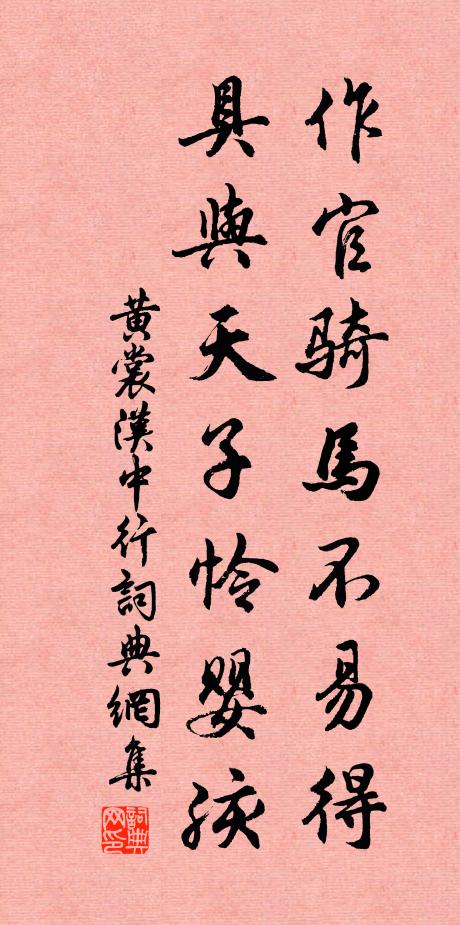 作官騎馬不易得
具與天子怜嬰孩
黃裳漢中行詞典網集
詞典网印